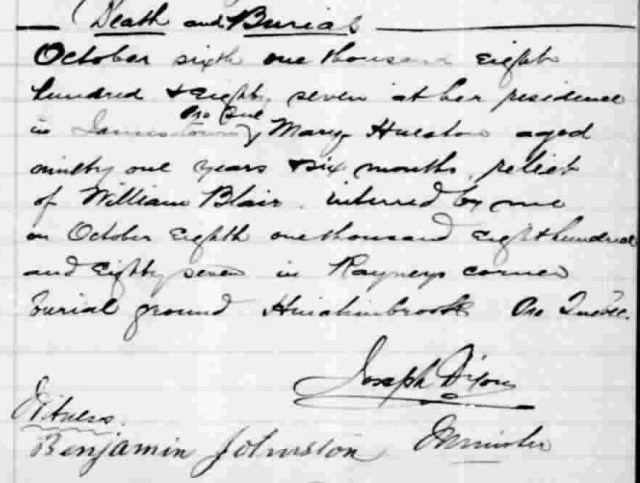 Death and Burial
October sixth one thousand Eight
hundred & Eighty seven at her residence
in Jamestown Pro Que Mary Hueston aged
ninety one years & six months, relict
of William Blair. interred by me
on October Eighth one thousand Eight hundred
and Eighty seven in Rayneys corner
burial ground Hinchinbrook Pro Quebec.
Joseph Dixon
Witness.
Benjamin Johnston Minister